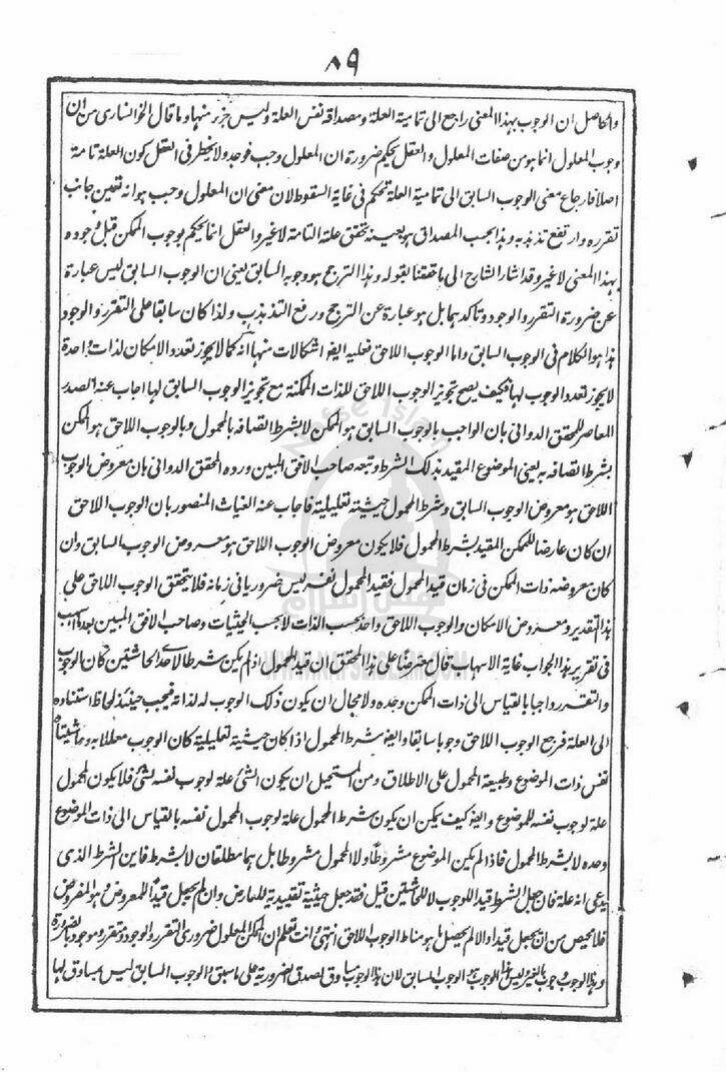 ٨٩
والحاصل ان الوجوب بهذا المعنى راجع الى تمامية العلة ومصداقه نفس العلة وليس جزء منها وما قال الخوانساري من ان
وجوب المعلول انما هو من صفات المعلول والعقل يحكم ضرورة ان المعلول وجب فوجد ولا يخطر فى العقل كون العلة تامة
اصلا فارجاع معنى الوجوب السابق الى تمامية العلة تحكم فى غاية السقوط لان معنى ان المعلول وجب هو انه تعين جانب
تقرره وارتفع تذبذبه وهذا بحسب المصداق هو بعينه تحقق علته التامة لا غير والعقل انما يحكم بوجوب الممكن قبل وجوده
بهذا المعنى لا غير وقد اشار الشارح الى ما حققنا بقوله وهذا الترجح هو وجوبه السابق يعنى ان الوجوب السابق ليس عبارة
عن ضرورة التقرر والوجود وتاكدهما بل هو عبارة عن الترجح ورفع التذبذب ولذا كان سابقا على التقرر والوجود
هذا هو الكلام فى الوجوب السابق واما الوجوب اللاحق فعليه ايضا اشكالات منها انه كما لا يجوز تعدد الامكان لذات واحدة
لا يجوز تعدد الوجوب لها فكيف يصح تجويز الوجوب اللاحق للذات الممكنة مع تجويز الوجوب السابق لها اجاب عنه الصدر
المعاصر للمحقق الدوانى بان الواجب بالوجوب السابق هو الممكن لا بشرط اتصافه بالمحمول وبالوجوب اللاحق هو الممكن
بشرط اتصافه به يعنى الموضوع المقيد بذلك الشرط وتبعه صاحب الافق المبين ورده المحقق الدوانى بان معروض الوجوب
اللاحق هو معروض الوجوب السابق وشرط المحمول حيثية تعليلية فاجاب عنه الغياث المنصور بان الوجوب اللاحق
ان كان عارضا للممكن المقيد بشرط المحمول فلا يكون معروض الوجوب اللاحق هو معروض الوجوب السابق وان
كان معروضه ذات الممكن فى زمان قيد المحمول فقيد المحمول نفسه ليس ضروريا فى زمانه فلا يتحقق الوجوب اللاحق على
هذا التقدير ومعروض الامكان والوجوب اللاحق واحد بحسب الذات لا بحسب الحيثيات وصاحب الافق المبين بعد ما اسهب
فى تقرير هذا الجواب غاية الاسهاب قال معترضا على هذا المحقق ان قيد المحمول اذا لم يكن شرطا لاحد الحاشيتين كان الوجوب
والتقرر واجبا بالقياس الى ذات الممكن وحده ولا مجال ان يكون ذلك الوجوب له لذاته فيجب حينئذ لحاظ استناده
الى العلة فرجع الوجوب اللاحق وجوبا سابقا وايضا شرط المحمول اذا كان حيثية تعليلية كان الوجوب معللا به وحاشيتاه
نفس ذات الموضوع وطبيعة المحمول على الاطلاق ومن المستحيل ان يكون الشئ علة لوجوب نفسه لشئ فلا يكون المحمول
علة لوجوب نفسه للموضوع وايضا كيف يمكن ان يكون شرط المحمول علة لوجوب المحمول نفسه بالقياس الى ذات الموضوع
وحده لا بشرط المحمول فاذا لم يكن الموضوع مشروطا ولا المحمول مشروطا بل هما مطلقان لا بشرط فاين الشرط الذى
يدعى انه علة فان جعل الشرط قيدا للوجوب لا للحاشيتين قيل فقد جعل حيثية تقييدية للعارض وان لم يجعل قيدا للمعروض وهو المفروض
فلا محيص من ان يجعل قيدا والا لم يحصل ما هو مناط الوجوب اللاحق انتهى وانت تعلم ان الممكن المعلول ضرورى التقرر والوجود ومتقرر وموجود بالضرورة
وهذا الوجوب وجوب بالغير وليس هذا الوجوب هو الوجوب السابق لان هذا الوجوب مساوق لصدق الضرورية على ما سبق والوجوب السابق ليس مساوق لها